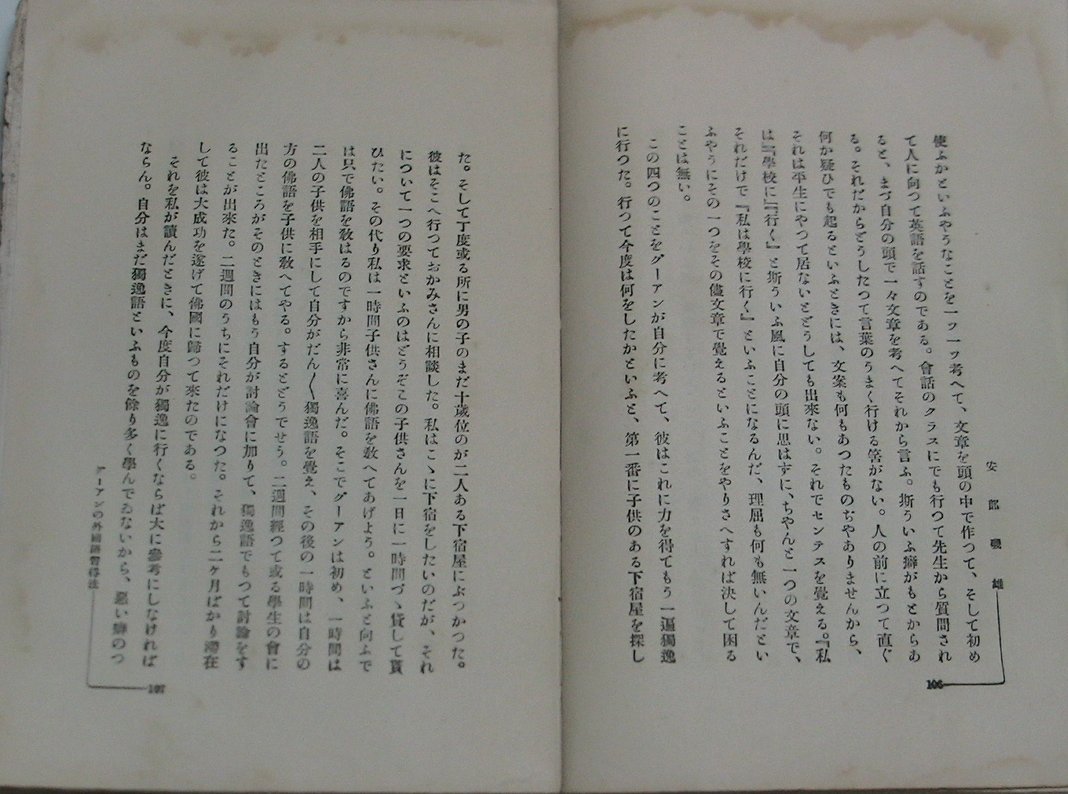 安部磯雄
使ふかといふやうなことを一ツ一ツ考へて、文章を頭の中で作つて、そして初め
て人に向つて英語を話すのである。會話のクラスにでも行つて先生から質問され
ると、まづ自分の頭で一々文章を考へてそれから言ふ。斯ういふ癖がもとからあ
る。それだからどうしたつて言葉のうまく行ける筈がない。人の前に立つて直ぐ
何か疑ひでも起るといふときには、文案も何もあつたものぢやありませんから、
それは平生にやつて居ないとどうしても出來ない。それでセンテスを覺える。『私
は』『學校に』『行く』と斯ういふ風に自分の頭に思はずに、ちやんと一つの文章で、
それだけで『私は學校に行く』といふことになるんだ、理屈も何も無いんだとい
ふやうにその一つをその儘文章で覺えるといふことをやりさへすれば決して困る
ことは無い。
この四つのことをグーアンが自分に考へて、彼はこれに力を得てもう一遍獨逸
に行つた。行つて今度は何をしたかといふと、第一番に子供のある下宿屋を探し
106
た。そして丁度或る所に男の子のまだ十歳位のが二人ある下宿屋にぶつかつた。
彼はそこへ行つておかみさんに相談した。私はこゝに下宿をしたいのだが、それ
について一つの要求といふのはどうぞこの子供さんを一日に一時間づゝ貸して貰
ひたい。その代も私は一時間子供さんに佛語を敎へてあげよう。といふと向ふで
は只で佛語を敎はるのですから非常に喜んだ。そこでグーアンは初め、一時間は
二人の子供を相手にして自分がだん〱獨逸語を覺え、その後の一時間は自分の
方の佛語を子供に敎へてやる。するとどうでせう。二週間經つて或る學生の會に
出たところがそのときにはもう自分が討論會に加りて、獨逸語でもつて討論をす
ることが出來た。二週間のうちにそれだけになつた。それから二ケ月ばかり滯在
して彼は大成功を遂げて佛國に歸つて來たのである。
それを私が讀んだときに、今度自分が獨逸に行くならば大に參考にしなければ
ならん。自分はまだ獨逸語といふものを餘り多く學んでゐないから、惡い癖のつ
グーアンの外國語習得法
107